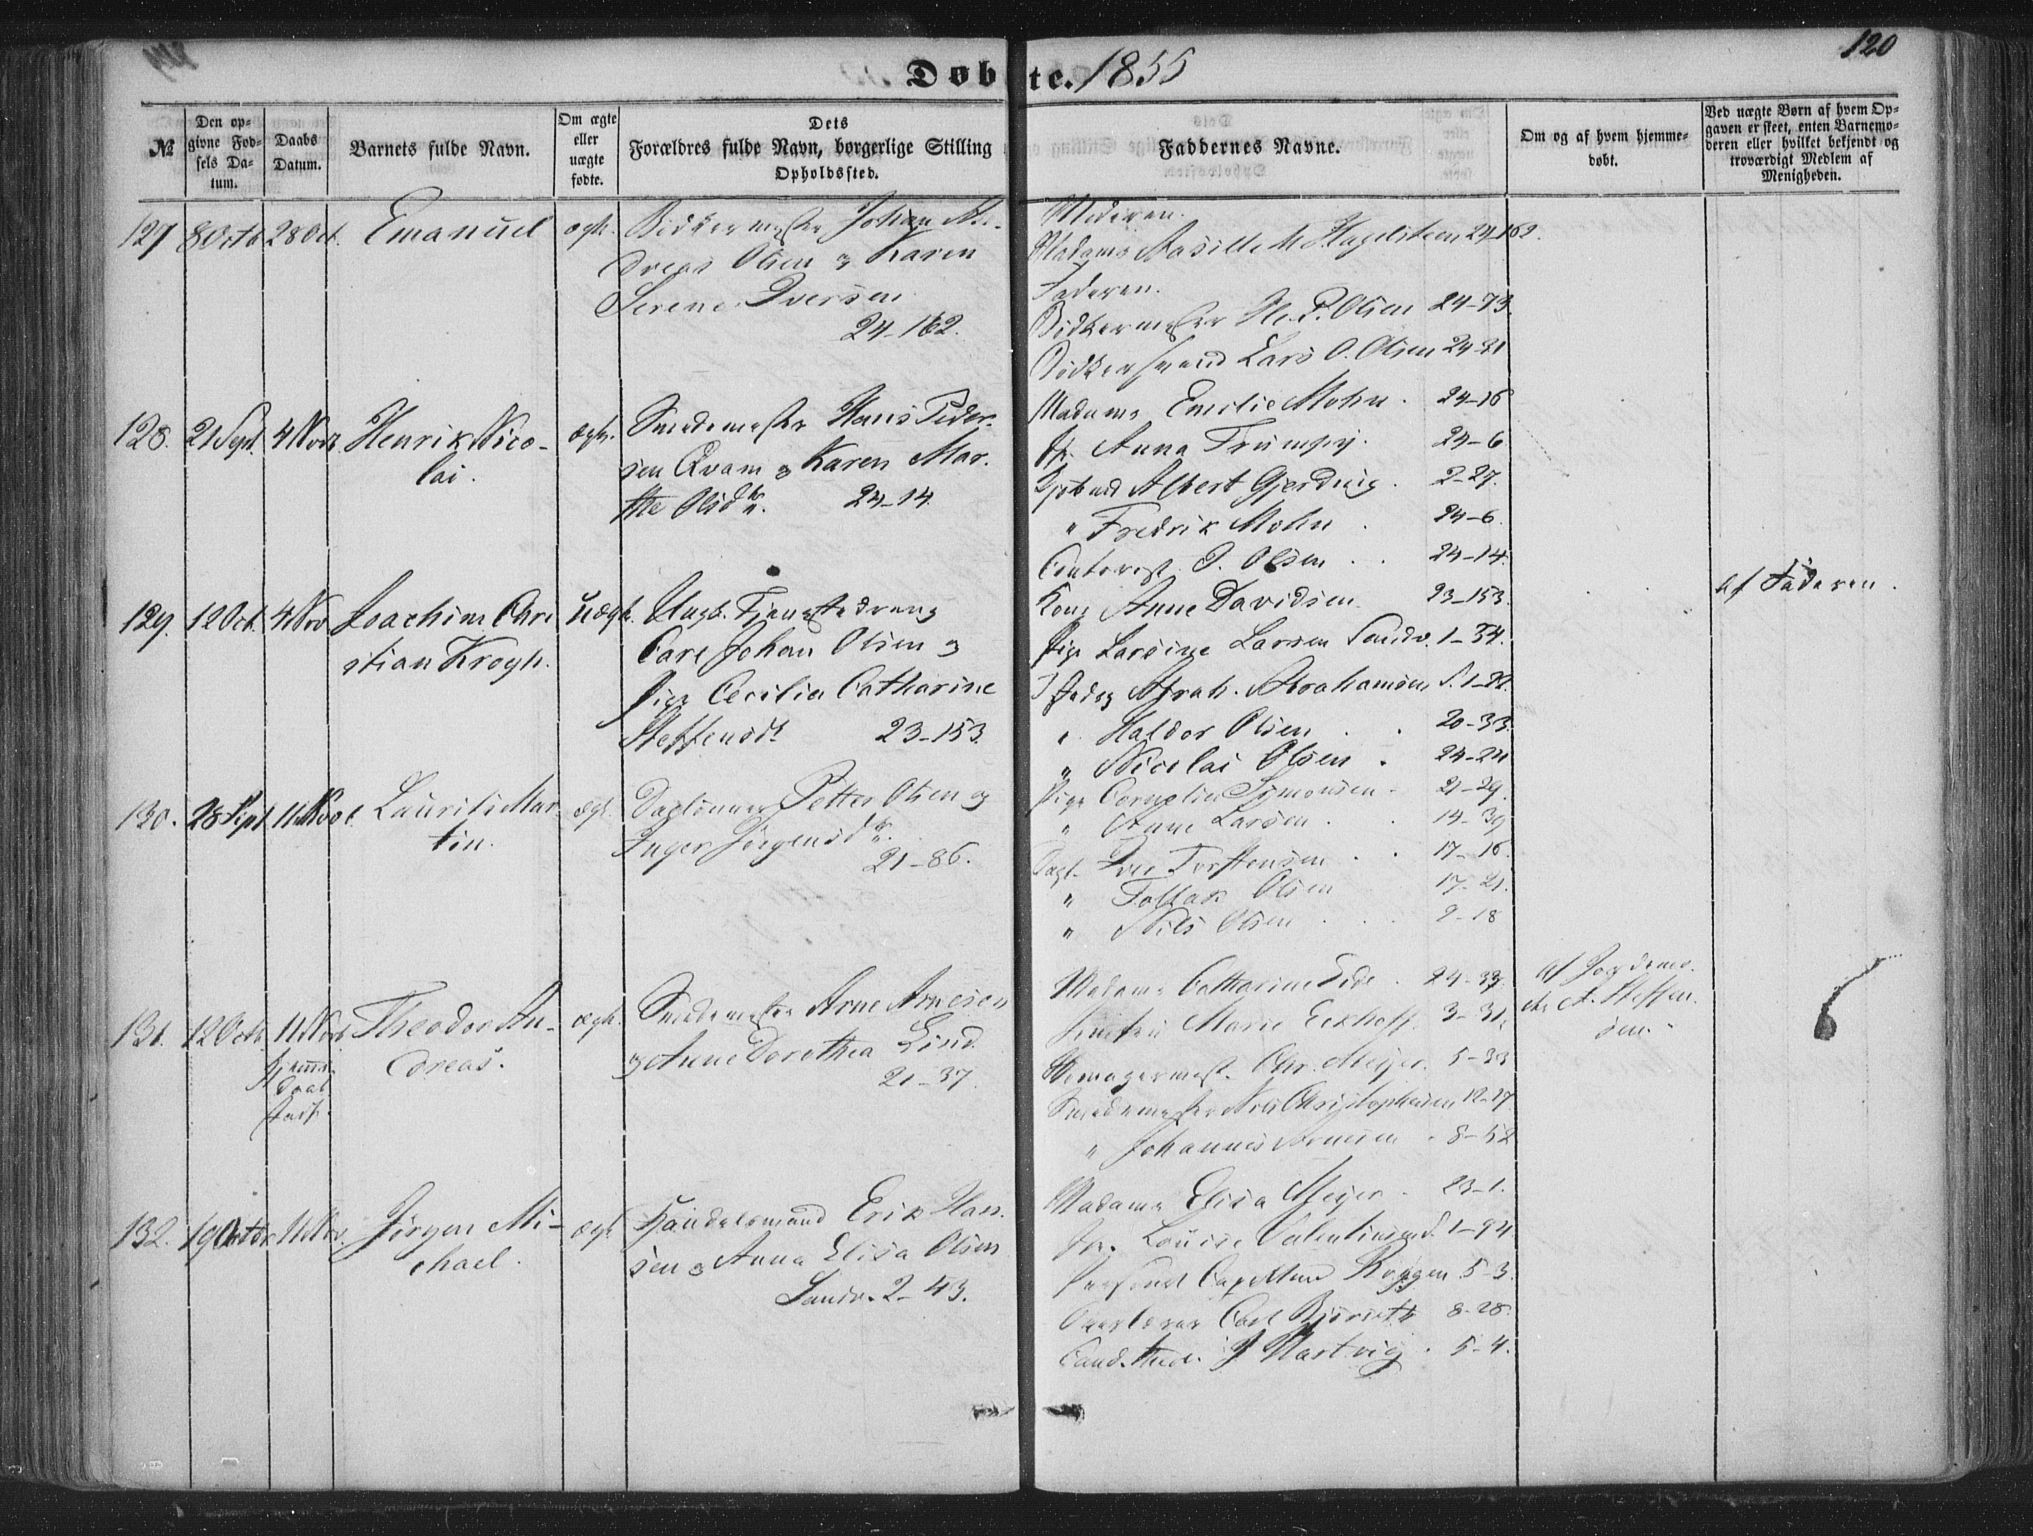 Døbte. 1855
120
№
Den op-
givne Fød-
sels Da-
tum.
Daabs
Datum.
Barnets fulde Navn.
Om ægte
eller
uægte
fødte.
Dets
Forældres fulde Navn, borgerlige Stilling
Opholdssted.
Faddernes Navne.
Om og af hvem hjemme-
døbt.
Ved uægte Børn af hvem Op-
gaven er skeet, enten Barnemo-
deren eller hvilket bekjendt og
troværdigt Medlem af
Menigheden.
127 8 Octb 28 Oct. Emanuel ægte.
Bødkermester Johan An-
dreas Olsen og Karen
Serene Iversen
24-162.
Moderen.
Madame Hagelsteen 24-162.
Faderen.
Bødkermester P. Olsen 24-73.
Bødkersvend Lars O. Olsen 24-81
128. 21 Sept. 4 Novb Henrik Nico-
lai.
ægte.
Smedemester Hans Peder-
sen Qvam og Karen Mar-
the Olsdtr. 24-14.
Madame Emilie Mohn. 24-16
Jfr. Anna Trumpy. 24-6
Albert Gjerding. 2-27.
" Fredrik Mohn. 24-6.
Contorist J. Olsen. 24-14.
129. 12 Oct. 4 Nov Joachim Chri
stian Krogh.
Uægte. Ungk. Tjenestedreng
Carl Johan Olsen og
Pige Cecilia Catharine
Steffensdt. 23-153.
Kone Anne Davidsen 23-153.
Pige Larsine Larsen Sandv. 1-34.
Abrah. Abrahamsen S. 1-22.
" Haldor Olsen. 20-33.
" Nicolai Olsen. 24-24
af Faderen.
130. 28 Sept 11 Novb. Lauritz Mar-
tin.
ægte.
Daglønner Petter Olsen og
Inger Jörgensdtr.
21-86.
Pige Cornelia Symonsen. 21-29.
" Anne Larsen. 14-39
Dagl. Iver Torstensen. 17-16.
" Tollak Olsen 17-21.
" Nils Olsen. 2-18
131. 12 Octb. 11 Novb Theodor An-
dreas.
ægte.
Hjemme
daab
Smedemester Arne Arnesen
og Anne Dorothea Lind
21-37.
Madame Catharine Eide. 24-39.
Marie Eckhoff. 3-31.
Chr. Meyer. 5-33
Smedemester Nils Christophersen 12-17
" Johannes Arnesen. 8-52
af Jordemo-
der A. Steffen-
sen.
132. 19 Octbr. 11 Nov. Jörgen Mi-
chael.
ægte
Handelsmand Erik Han-
sen og Anna Elisa Olsen
Sandv. 2-43.
Madame Elisa Meyer. 23-1.
Jfr. Louise Valentinsen S. 1-94
Personel Capellan Roggen 5-3.
Overlærer Carl Bjørseth 8-28.
Cand. theol. J Hartvig. 5-4.